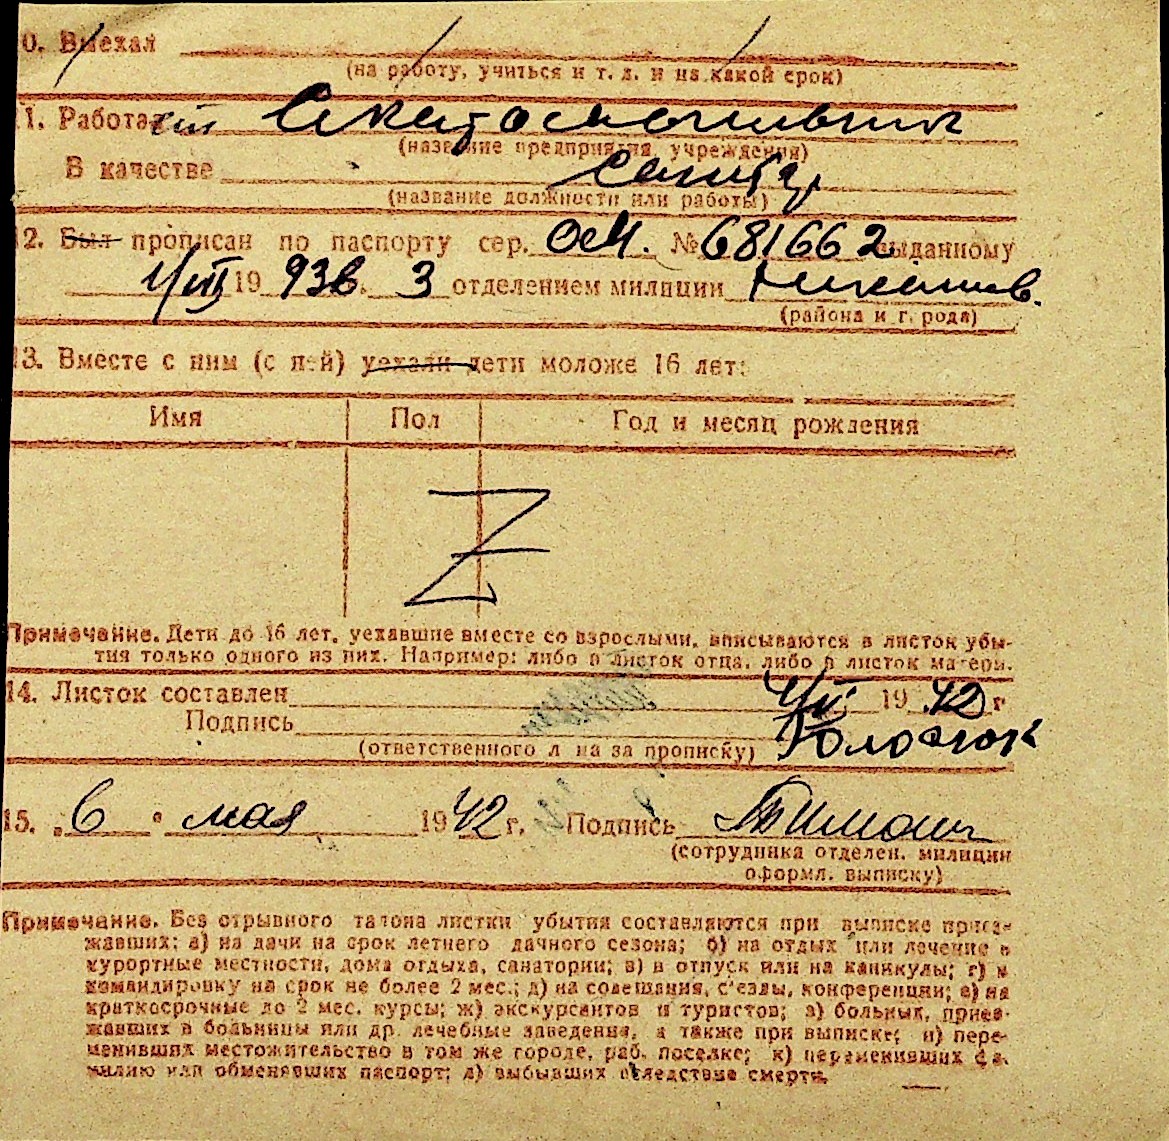 0. Выехал
(на работу, учиться и т. д. и на какой срок)
1. Работает
(название предприятия, учреждения)
В качестве санитар
(название должности или работы)
12. Был прописан по паспорту сер. № 681662 выданному
1/VIII 19 93в. 3 отделением милиции
(района и города)
13. Вместе с ним (с ней) уехали дети моложе 16 лет:
Имя Пол Год и месяц рождения
Z
Примечание. Дети до 16 лет, уехавшие вместе со взрослыми, вписываются в листок убы-
тия только одного из них. Например: либо в листок отца, либо в листок матери.
14. Листок составлен 19 42 г
Подпись
(ответственного лица за прописку)
15. „6" мая 1942 г. Подпись
(сотрудника отделен. милиции
оформл. выписку)
Примечание. Без отрывного талона листки убытия составляются при выписке приез-
жавших: а) на дачи на срок летнего дачного сезона; б) на отдых или лечение в
курортные местности, дома отдыха, санатории; в) в отпуск или на каникулы; г) в
командировку на срок не более 2 мес.; д) на совещания, с'езды, конференции; е) на
краткосрочные до 2 мес. курсы; ж) экскурсантов и туристов; з) больных, приез-
жавших в больницы или др. лечебные заведения, а также при выписке: и) пере-
менивших местожительство в том же городе, раб. поселке; к) переменивших фа-
милию или обменявших паспорт; л) выбывших вследствие смерти.